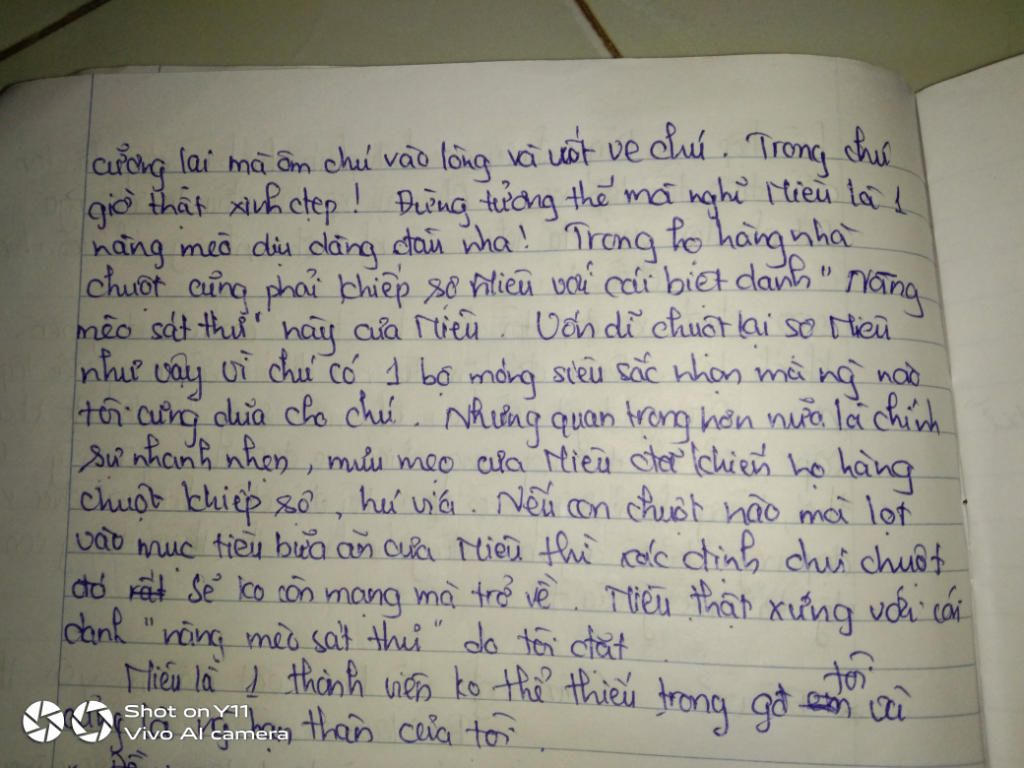 cưỡng lại mà ôm chú vào lòng và vuốt ve chú. Trong chú
giờ thật xinh đẹp! Đừng tưởng thế mà nghỉ Miêu là 1
nàng mèo dịu dàng đâu nha! Trong họ hàng nhà
chuột cũng phải khiếp sợ Miêu với cái biệt danh "Nàng
mèo sát thủ" này của Miêu. Vốn dĩ chuột lại sợ Miêu
như vậy vì chú có 1 bộ móng siêu sắc nhọn mà ng nào
tôi cũng dũa cho chú. Nhưng quan trọng hơn nữa là chính
sự nhanh nhẹn, mưu mẹo của Miêu để khiến họ hàng
chuột khiếp sợ, hú vía. Nếu con chuột nào mà lọt
vào mục tiêu bữa ăn của Miêu thì xác định chú chuột
đó sẽ ko còn mạng mà trở về. Miêu thật xứng với cái
danh "nàng mèo sát thủ" do tôi đặt
Miêu là 1 thành viên ko thể thiếu trong gđ tôi và
cũng là ng bạn thân của tôi.
Shot on Y11
Vivo AI camera